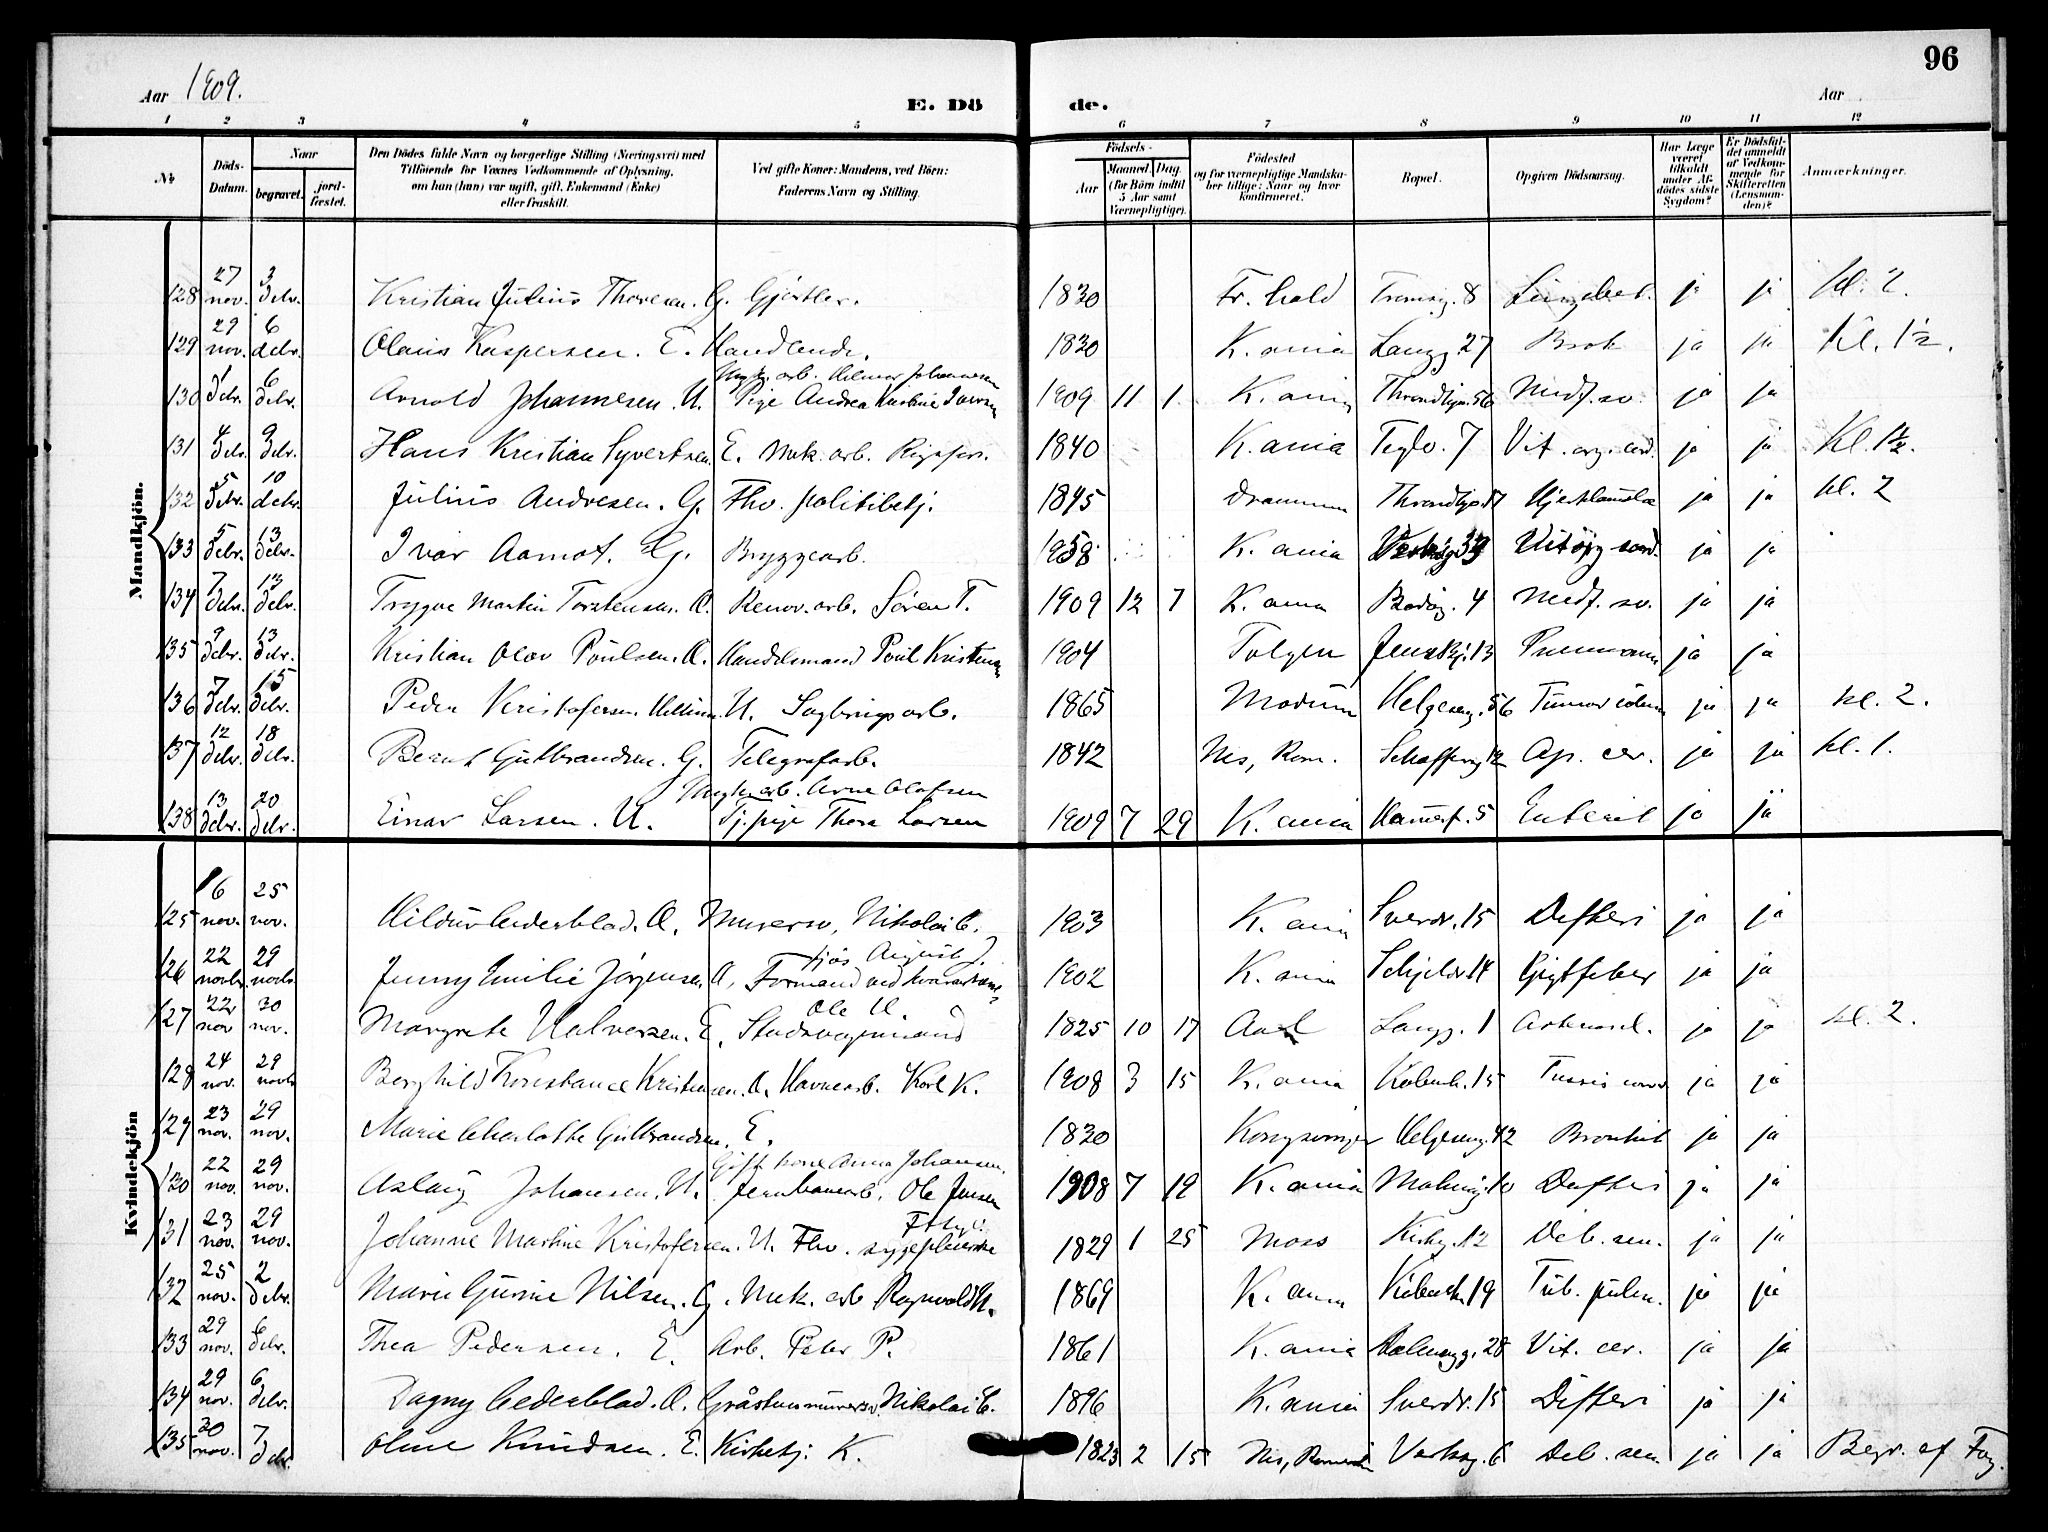 96
Aar 1909.
E. Dö de.
Aar
1 2 3 4 5 6 7 8 9 10 11 12
No.
Döds-Datum.
Naar
begravet.
jord-fæstet.
Den Dödes fulde Navn og borgerlige Stilling (Næringsvei) med
Tilföiende for Voxnes Vedkommende af Oplysning,
om han (hun) var ugift, gift, Enkemand (Enke)
eller fraskilt.
Ved gifte Koner: Mandens, ved Börn:
Faderens Navn og Stilling.
Födsels-
Aar
Maaned. Dag
(for Börn indtil
5 Aar samt
Værnepligtige).
Födested
og for værnepligtige Mandska-
ber tillige: Naar og hvor
konfirmeret.
Bopæl.
Opgiven Dödsaarsag.
Har Læge
været
tilkaldt
under Af-
dödes sidste
Sygdom?
Er Dödsfal-
det anmeldt
af Vedkom-
mende for
Skifteretten
(Lensman-
den)?
Anmærkninger.
Mandkjön.
128 27 nov. 3 debr. Kristian Julius Thoresen. G. Gjørtler. 1830 Fr.hald Tromsg. 8 ja ja kl. 2.
129 29 nov. 6 debr. Olaus Kaspersen. E. Handlende. 1830 K.ania Langg. 27 ja ja Kl. 1½.
130 1 debr. 6 debr. Arnold Johannesen. U. arb. Hilmar Johannesen
Pige Andrea Kastine Iversen 1909 11 1 K.ania Throndhjm. 56 Medf. sv. ja ja
131 4 debr. 9 debr. Hans Kristian Syvertsen. E. Mek. arb. 1840 K.ania Teglv. 7 Vit. org. cord. ja ja Kl. 1½.
132 5 debr. 10 debr. Julius Andresen. G. Fhv. politibetj. 1845 Drammen Throndhjs. 17 Hjerteslag ja ja kl. 2
133 5 debr. 13 debr. Ivar Aamot. G. Bryggearb. 1858 K.ania Vit. org. cord. ja ja
134 7 debr. 13 debr. Trygve Martin Torstensen. U. Renov. arb. Søren T. 1909 12 7 K.ania Bodøg. 4 Medf. sv. ja ja
135 9 debr. 13 debr. Kristian Olav Poulsen. U. Handelsmand Poul Kristensen 1904 Tolgen Jens Bj. 13 Pneumoni ja ja
136 7 debr. 15 debr. Peder Kristofersen U. Sagbrugsarb. 1865 Modum Helgeseng. 56 Tumor ja ja kl. 2.
137 12 debr. 18 debr. Bernt Gulbrandsen. G. Telegrafarb. 1842 Nes, Rom. 12 Ap. cer. ja ja kl. 1.
138 13 debr. 20 debr. Einar Larsen. U. arb. Arne Olafsen
Tj. pige Thora Larsen 1909 7 29 K.ania Hammerf. 5 Enterit ja ja
Kvindekjön
125 16 nov. 25 nov. Hildur Cederblad. U. Murersv. Nikolai C. 1903 K.ania Sverdr. 15 Difteri ja ja
126 22 novbr. 29 novb. Jenny Emilie Jørgensen U. Formand ved August J. 1902 K.ania Schjeldr. 14 Gigtfeber ja ja
127 22 nov 30 nov. Margrete Halversen. E. Stadsvognmand Ole H. 1825 10 17 Aal Langg. 1 ja ja kl. 2.
128 24 nov. 29 novb. Berghild Konstance Kristensen. U. Havnearb. Karl K. 1908 3 15 K.ania Københ. 15 Tussis conv. ja ja
129 23 nov. 29 nov. Marie Charlotte Gulbrandsen. E. 1830 Kongsvinger Helgeseng. 42 Bronkit ja ja
130 22 nov. 29 nov. Aslaug Johansen. U. Gift kone Anna Johansen,
Jernbanearb. Ole Jensen 1908 7 19 K.ania Malmøg. 10 Difteri ja ja
131 23 nov. 29 nov. Johanne Martine Kristofersen. U. Fhv. sygepleierske 1829 1 25 Moss Kirkeg. 12 Deb. sen. ja ja
132 25 nov. 2 debr. Marie Gurine Nilsen. G. Mek. arb. Ragnvald N. 1869 K.ania Københ. 19 Tub. pulm. ja ja
133 29 nov. 6 debr. Thea Pedersen. E. Arb. Peter P. 1861 K.ania 28 Vit. cer. ja ja
134 29 nov. 6 debr. Dagny Cederblad. U. Gråstensmurersv. Nikolai C. 1896 K.ania Sverdr. 15 Difteri ja ja
135 30 nov. 7 debr. Oline Knudsen. E. Kirkebtj. K. 1823 2 15 Nes, Romerike Verksg. 6 Deb. sen. ja ja Begr. af Fog.